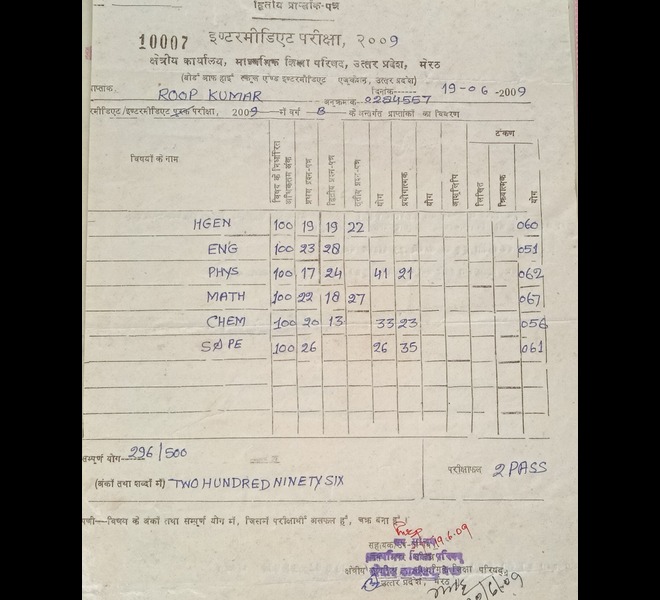 द्वितीय प्राप्तांक-पत्र
10007 इण्टरमीडिएट परीक्षा, २००9
क्षेत्रीय कार्यालय, माध्यमिक शिक्षा परिषद, उत्तर प्रदेश, मेरठ
(बोर्ड आफ हाई स्कूल एण्ड इण्टरमीडिएट एजूकेशन, उत्तर प्रदेश)
प्राप्तांक ROOP KUMAR दिनांक 19-06-2009
अनुक्रमांक 2284557
रमीडिएट/इण्टरमीडिएट पूरक परीक्षा, 2009 में वर्ग B के अन्तर्गत प्राप्तांकों का विवरण
टंकण
विषयों के नाम विषय के निर्धारित अधिकतम अंक प्रथम प्रश्न-पत्र द्वितीय प्रश्न-पत्र तृतीय प्रश्न-पत्र योग प्रयोगात्मक योग लिखित क्रियात्मक योग
HGEN 100 19 19 22 060
ENG 100 23 28 051
PHYS 100 17 24 41 21 062
MATH 100 22 18 27 067
CHEM 100 20 13 33 23 056
S&PE 100 26 26 35 061
सम्पूर्ण योग 296/500
परीक्षाफल 2 PASS
(अंकों तथा शब्दों में) TWO HUNDRED NINETY SIX
विषय के अंकों तथा सम्पूर्ण योग में, जिसमें परीक्षार्थी असफल हों, चक्र बना हो
19.6.09
शिक्षा परिषद्
उत्तर प्रदेश, मेरठ